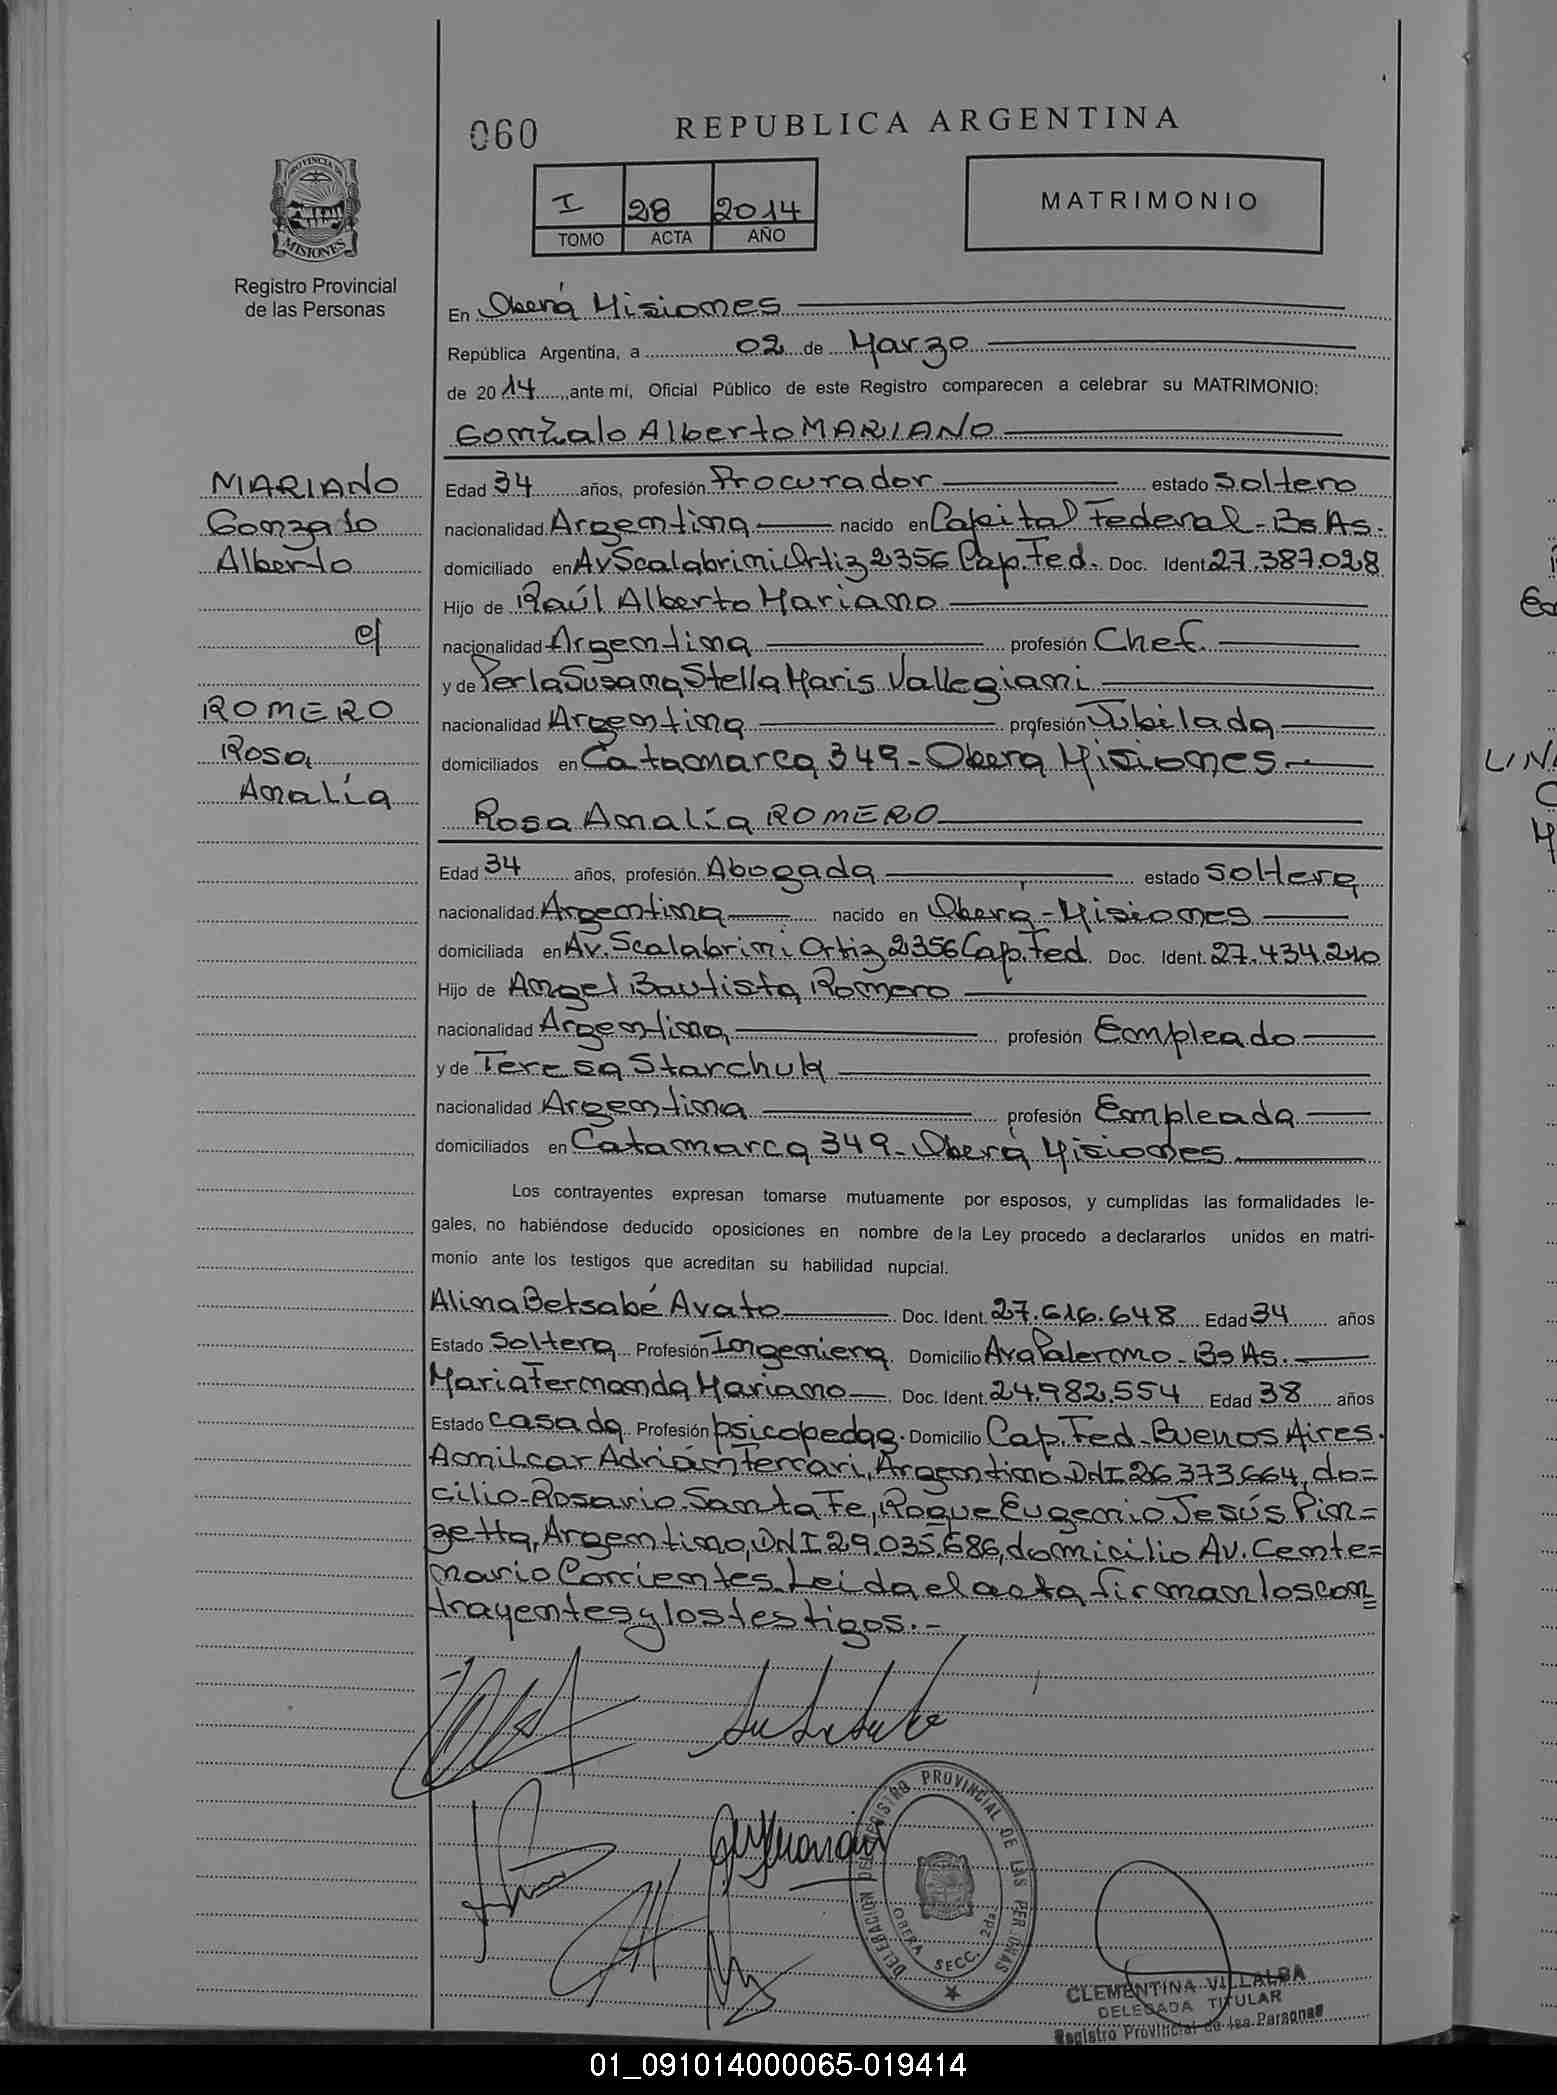 060
REPUBLICA ARGENTINA
PROVINCIA DE
MISIONES
Registro Provincial
de las Personas
I 28 2014
TOMO ACTA AÑO
MATRIMONIO
En Oberá Misiones
República Argentina, a 02 de Marzo
de 2014, ante mí, Oficial Público de este Registro comparecen a celebrar su MATRIMONIO:
Gonzalo Alberto MARIANO
MARIANO
Gonzalo
Alberto
c/
ROMERO
Rosa
Amalía
Edad 34 años, profesión Procurador estado Soltero
nacionalidad Argentina nacido en Capital Federal - Bs As.
domiciliado en Av Scalabrini Ortiz 2356 Cap. Fed. Doc. Ident. 27.387.028
Hijo de Raúl Alberto Mariano
nacionalidad Argentina profesión Chef.
y de Perla Susana Stella Maris Vallegiani
nacionalidad Argentina profesión Jubilada
domiciliados en Catamarca 349 - Obera Misiones
Rosa Amalía ROMERO
Edad 34 años, profesión Abogada estado Soltera
nacionalidad Argentina nacido en Obera - Misiones
domiciliada en Av. Scalabrini Ortiz 2356 Cap. Fed. Doc. Ident. 27.434.210
Hijo de Angel Bautista Romero
nacionalidad Argentina profesión Empleado
y de Teresa Starchuk
nacionalidad Argentina profesión Empleada
domiciliados en Catamarca 349 - Oberá Misiones
Los contrayentes expresan tomarse mutuamente por esposos, y cumplidas las formalidades le-
gales, no habiéndose deducido oposiciones en nombre de la Ley procedo a declararlos unidos en matri-
monio ante los testigos que acreditan su habilidad nupcial.
Alina Betsabé Avato Doc. Ident. 27.616.648 Edad 34 años
Estado Soltera Profesión Ingeniera Domicilio Ava Palermo - Bs As.
Maria Fernanda Mariano Doc. Ident. 24.982.554 Edad 38 años
Estado casada Profesión psicopedag. Domicilio Cap. Fed - Buenos Aires.
Amilcar Adrián Ferrari, Argentino DNI 26.373.664, do=
cilio Rosario Santa Fe, Roque Eugenio Jesús Pin=
zetta, Argentino, DNI 29.035.686, domicilio Av. Cente=
nario Corrientes. Leida el acta firman los con=
trayentes y los testigos.-
DELEGACION DEL REGISTRO PROVINCIAL DE LAS PERSONAS
OBERA SECC. 2da
CLEMENTINA VILLALBA
DELEGADA TITULAR
Registro Provincial de las Personas
LIN
01_091014000065-019414